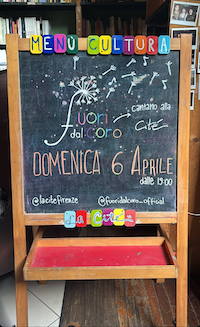 MENÙ CULTURA
fuori
dal coro
cantano alla
Cité
DOMENICA 6 APRILE
dalle 19:00
@lacitefirenze
@fuoridalcoro_official
La Cité